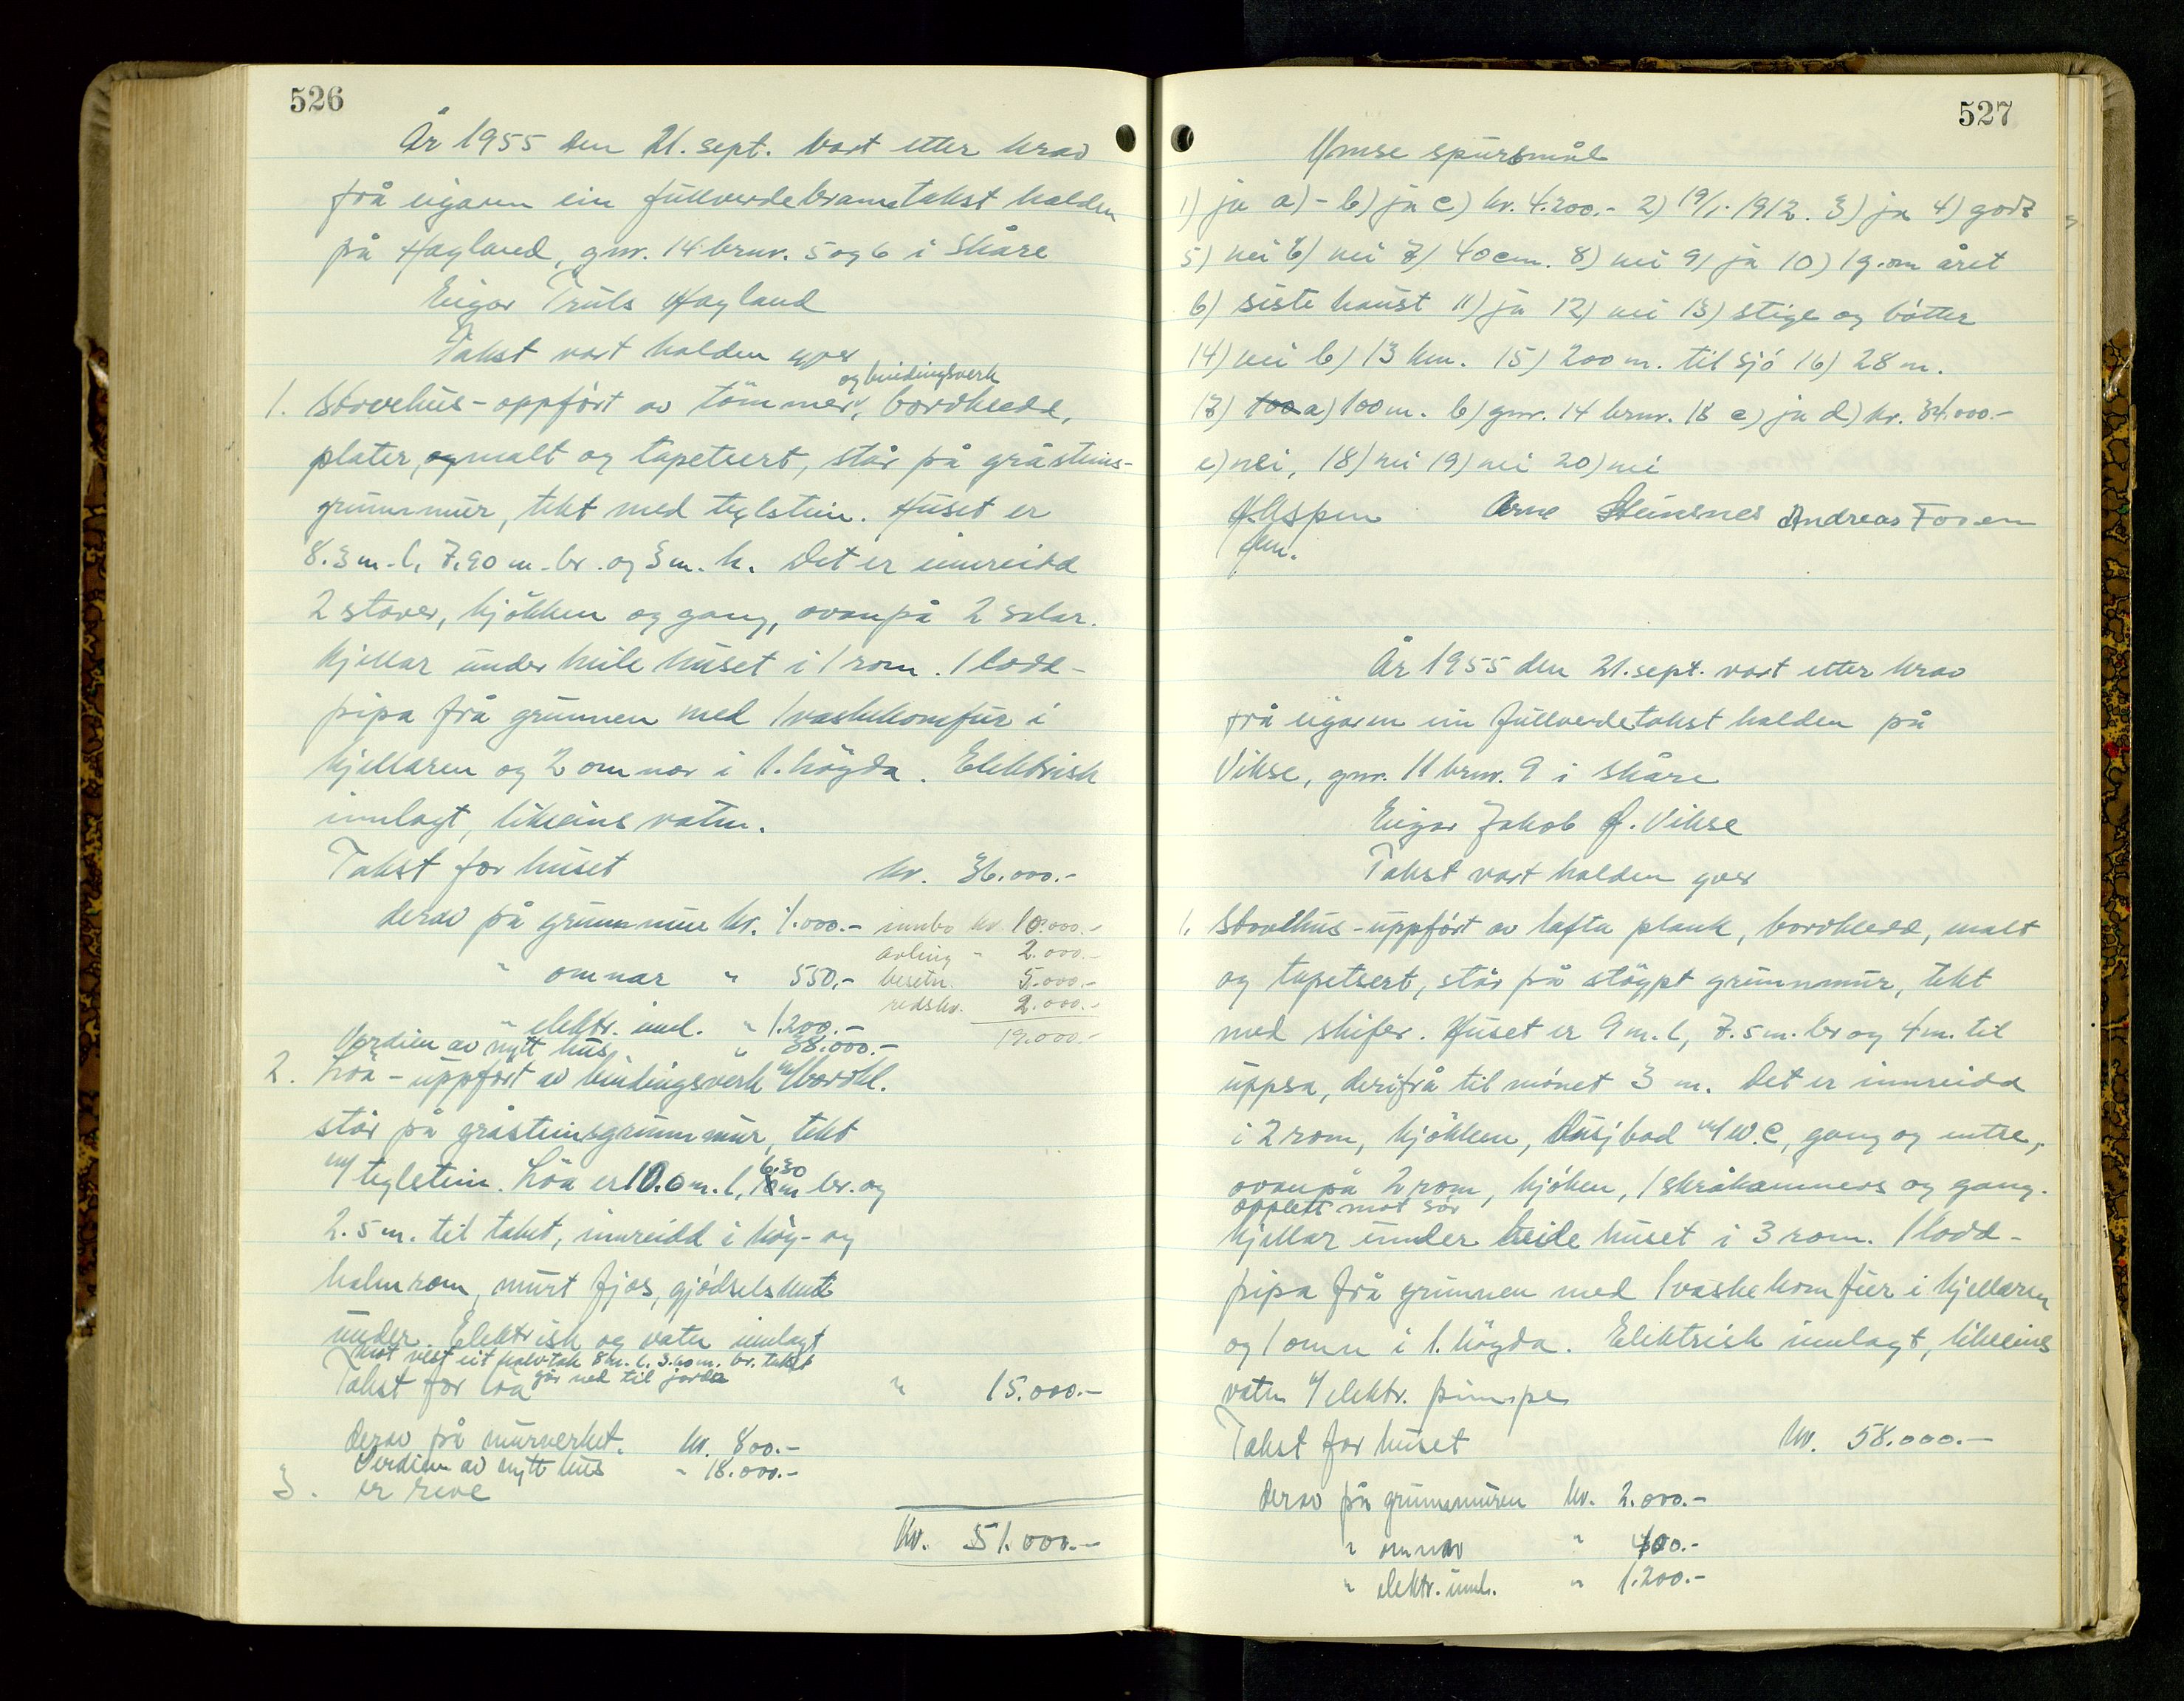 526
År 1955 den 21. sept. vart etter krav
frå eigaren ein fullverdebranntakst halden
på Hagland, gnr. 14 brnr. 5 og 6 i Skåre
Eigar Truls Hagland
Takst vart halden yver
og bindingsverk
1. Stovehus - oppført av tømmer, bordkledd,
plater, og malt og tapetsert, står på gråsteins-
grunnmur, tekt med teglstein. Huset er
8.3 m. l, 7.90 m. br. og 3 m. h. Det er innreidd
2 stover, kjøkken og gang, ovanpå 2 salar.
Kjellar under heile huset i 1 rom. 1 lodd-
pipa frå grunnen med 1 vaskekomfur i
kjellaren og 2 omnar i 1. høgda. Elektrisk
innlagt, likeeins vatn.
Takst for huset kr. 36.000.-
derav på grunnmur kr. 1.000.- innbo kr. 10.000.-
avling " 2.000.-
" omnar " 550.- besetn. 5.000.-
redsk. 2.000.-
" elektr. innl. " 1.200.-
19.000.-
Verdien av nytt hus " 38.000.-
2. Løa - uppført av bindingsverk m/bordkl.
står på gråsteinsgrunnmur, tekt
m/ teglstein. Løa er 10.0 m. l, 6.30 m br. og
2.5 m. til taket, innreidd i høy- og
halmrom, murt fjos, gjødselskut
under. Elektrisk og vatn innlagt
Mot vest eit halvtak 8 m. l. 3.40 m. br. taket
går ned til jorda
Takst for løa " 15.000.-
derav på murverket. kr. 800.-
Verdien av nytt hus " 18.000.-
3. er reve
kr. 51.000.-
527
Ymse spursmål
1) ja a) - b) ja c) kr. 4.200.- 2) 19/1. 1912. 3) ja 4) godt
5) nei 6) nei 7) 40 cm. 8) nei 9) ja 10) 1 g. om året
b) siste haust 11) ja 12) nei 13) stige og bøtter
14) nei b) 13 km. 15) 200 m. til sjø 16) 28 m.
17) 100 a) 100 m. b) gnr. 14 brnr. 18 c) ja d) kr. 34.000.-
e) nei, 18) nei 19) nei 20) nei
H. Aspen Arne Steinsnes Andreas Foven
fm.
År 1955 den 21. sept. vart etter krav
frå eigaren ein fullverdetakst halden på
Vikse, gnr. 11 brnr. 9 i Skåre
Eigar Jakob J. Vikse
Takst vart halden yver
1. Stovehus - uppført av lafta plank, bordkledd, malt
og tapetsert, står på støypt grunnmur, tekt
med skifer. Huset er 9 m. l, 7.5 m. br og 4 m. til
uppsa, derifrå til mønet 3 m. Det er innreidd
i 2 rom, kjøkken, dusjbad m/ W.C, gang og entre,
ovanpå 2 rom, kjøken, 1 skråkammers og gang.
opplett mot sør
Kjellar under heile huset i 3 rom. 1 lodd-
pipa frå grunnen med 1 vaskekomfur i kjellaren
og 1 omn i 1. høgda. Elektrisk innlagt, likeeins
vatn m/ elektr. pumpe
Takst for huset kr. 58.000.-
derav på grunnmuren kr. 2.000.-
" omnar " 400.-
" elektr. innl. " 1.200.-